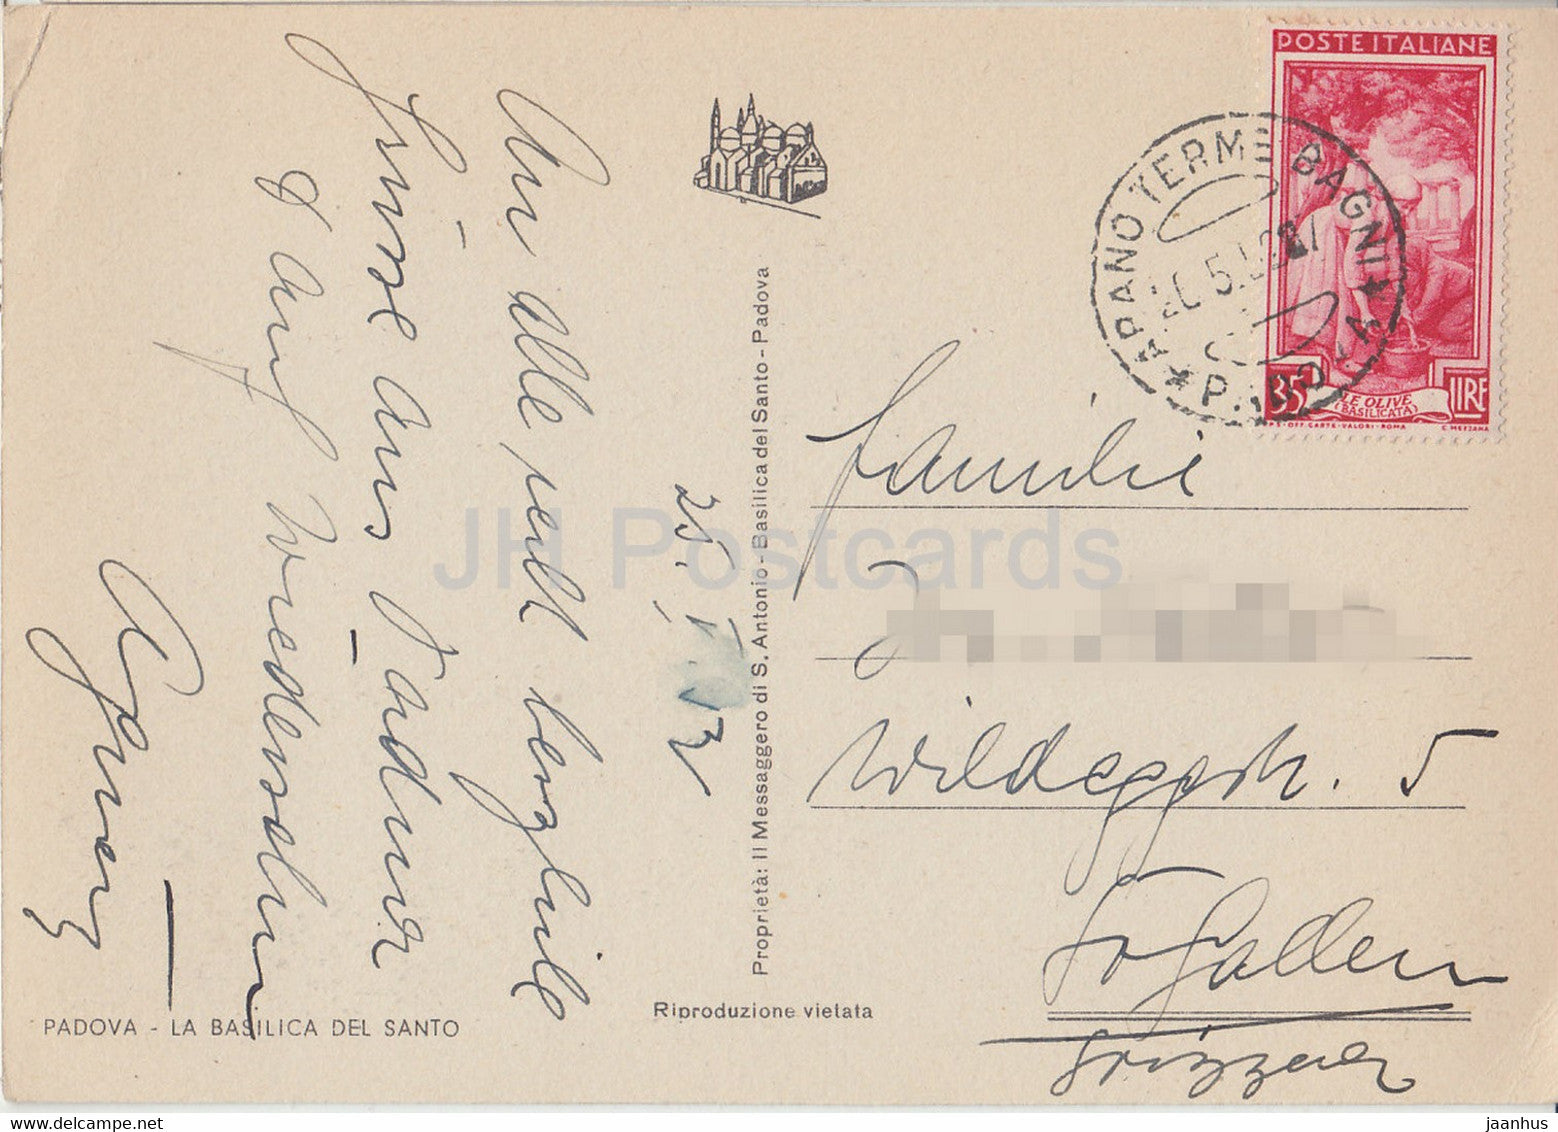 An Alle recht herzliche
Grüsse aus Padua
& Auf Wiedersehn
Agnes
25. V. 52
PADOVA - LA BASILICA DEL SANTO
Riproduzione vietata
Proprietà: Il Messaggero di S. Antonio - Basilica del Santo - Padova
POSTE ITALIANE
35 LIRE
LE OLIVE
(BASILICATA)
I.P.S. - OFF. CARTE - VALORI - ROMA C. MEZZANA
ABANO TERME BAGNI
PADOVA
Familie
Wildeggstr. 5
St Gallen
Svizzera
JH Postcards
jaanhus